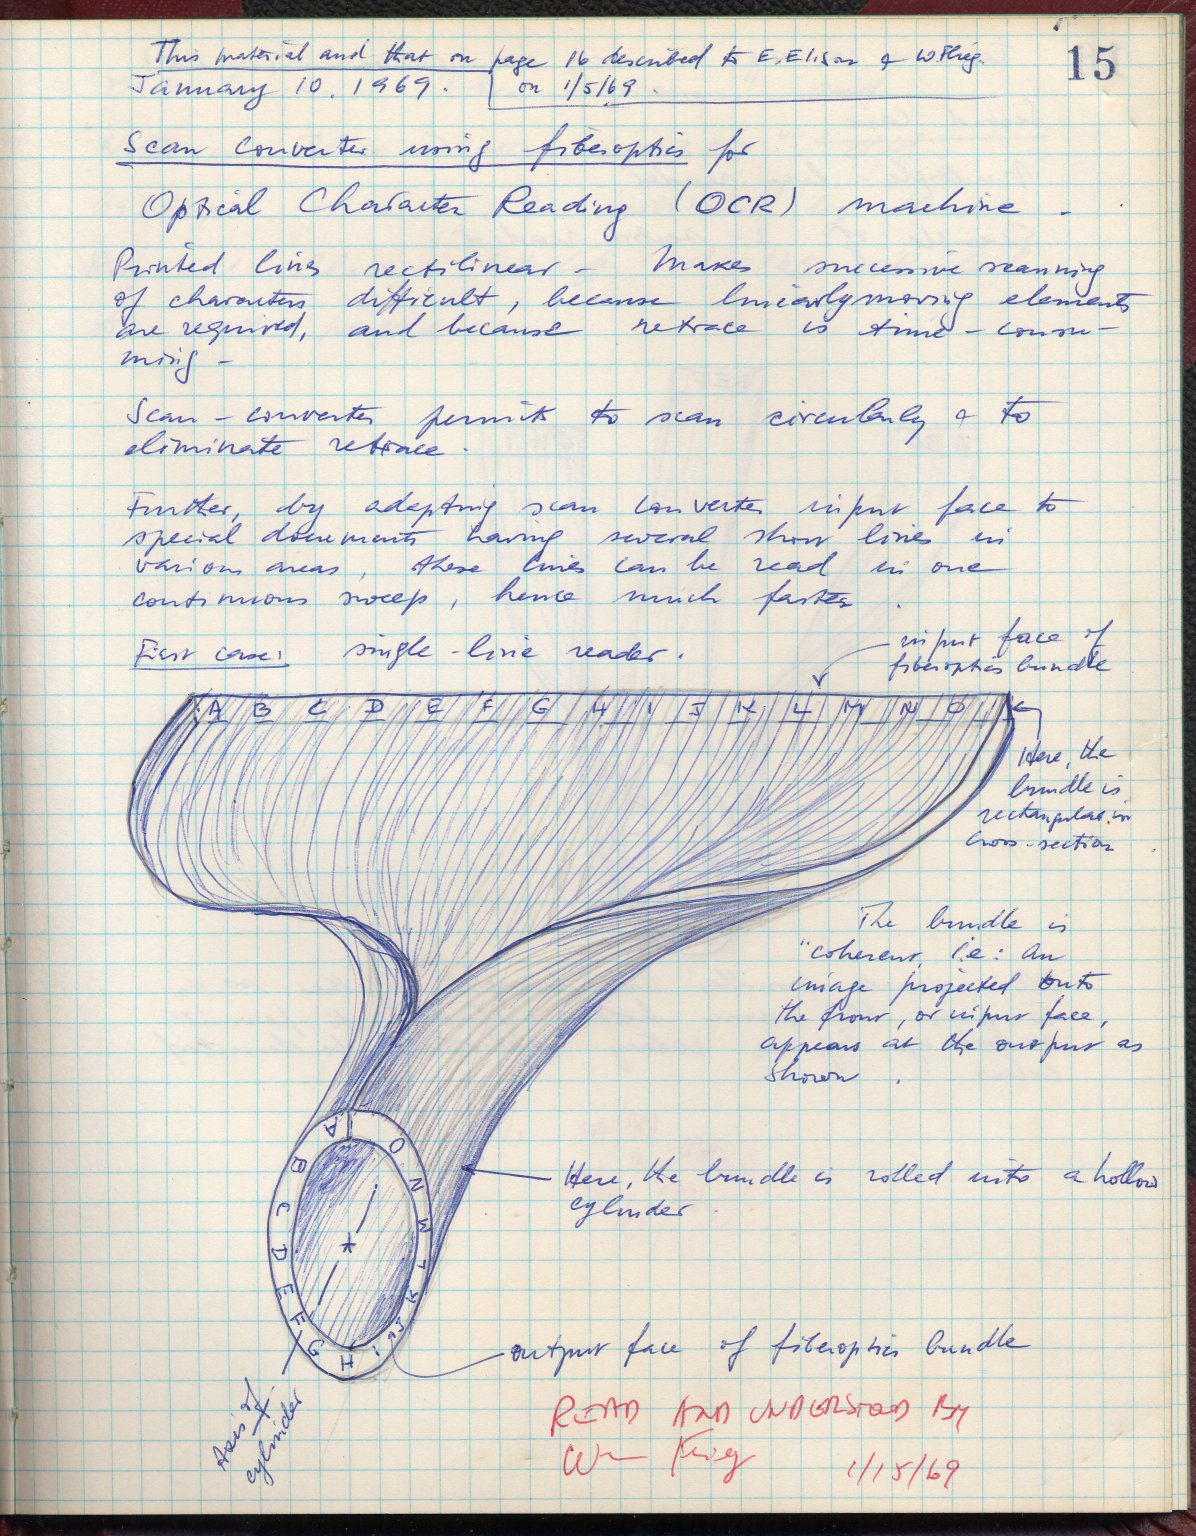 15
This material and that on page 16 described to E. Elison & W Thieg.
January 10. 1969. on 1/5/69.
Scan converter using fiberoptics for
Optical Character Reading (OCR) machine -
Printed lines rectilinear - Makes successive scanning
of characters difficult, because linearly moving elements
are required, and because retrace is time-consu-
ming -
Scan-converter permits to scan circularly & to
eliminate retrace.
Further, by adapting scan converter input face to
special documents having several short lines in
various areas, these lines can be read in one
continuous sweep, hence much faster.
First case: single-line reader.
input face of
fiberoptics bundle
A B C D E F G H I J K L M N O
Here, the
bundle is
rectangular in
cross-section
The bundle is
"coherent, i.e: an
image projected onto
the front, or input face,
appears at the output as
shown.
A B C D E F G H I J K L M N O
Here, the bundle is rolled into a hollow
cylinder.
output face of fiberoptics bundle
Axis of
cylinder
READ AND UNDERSTOOD BY
Wm
1/15/69